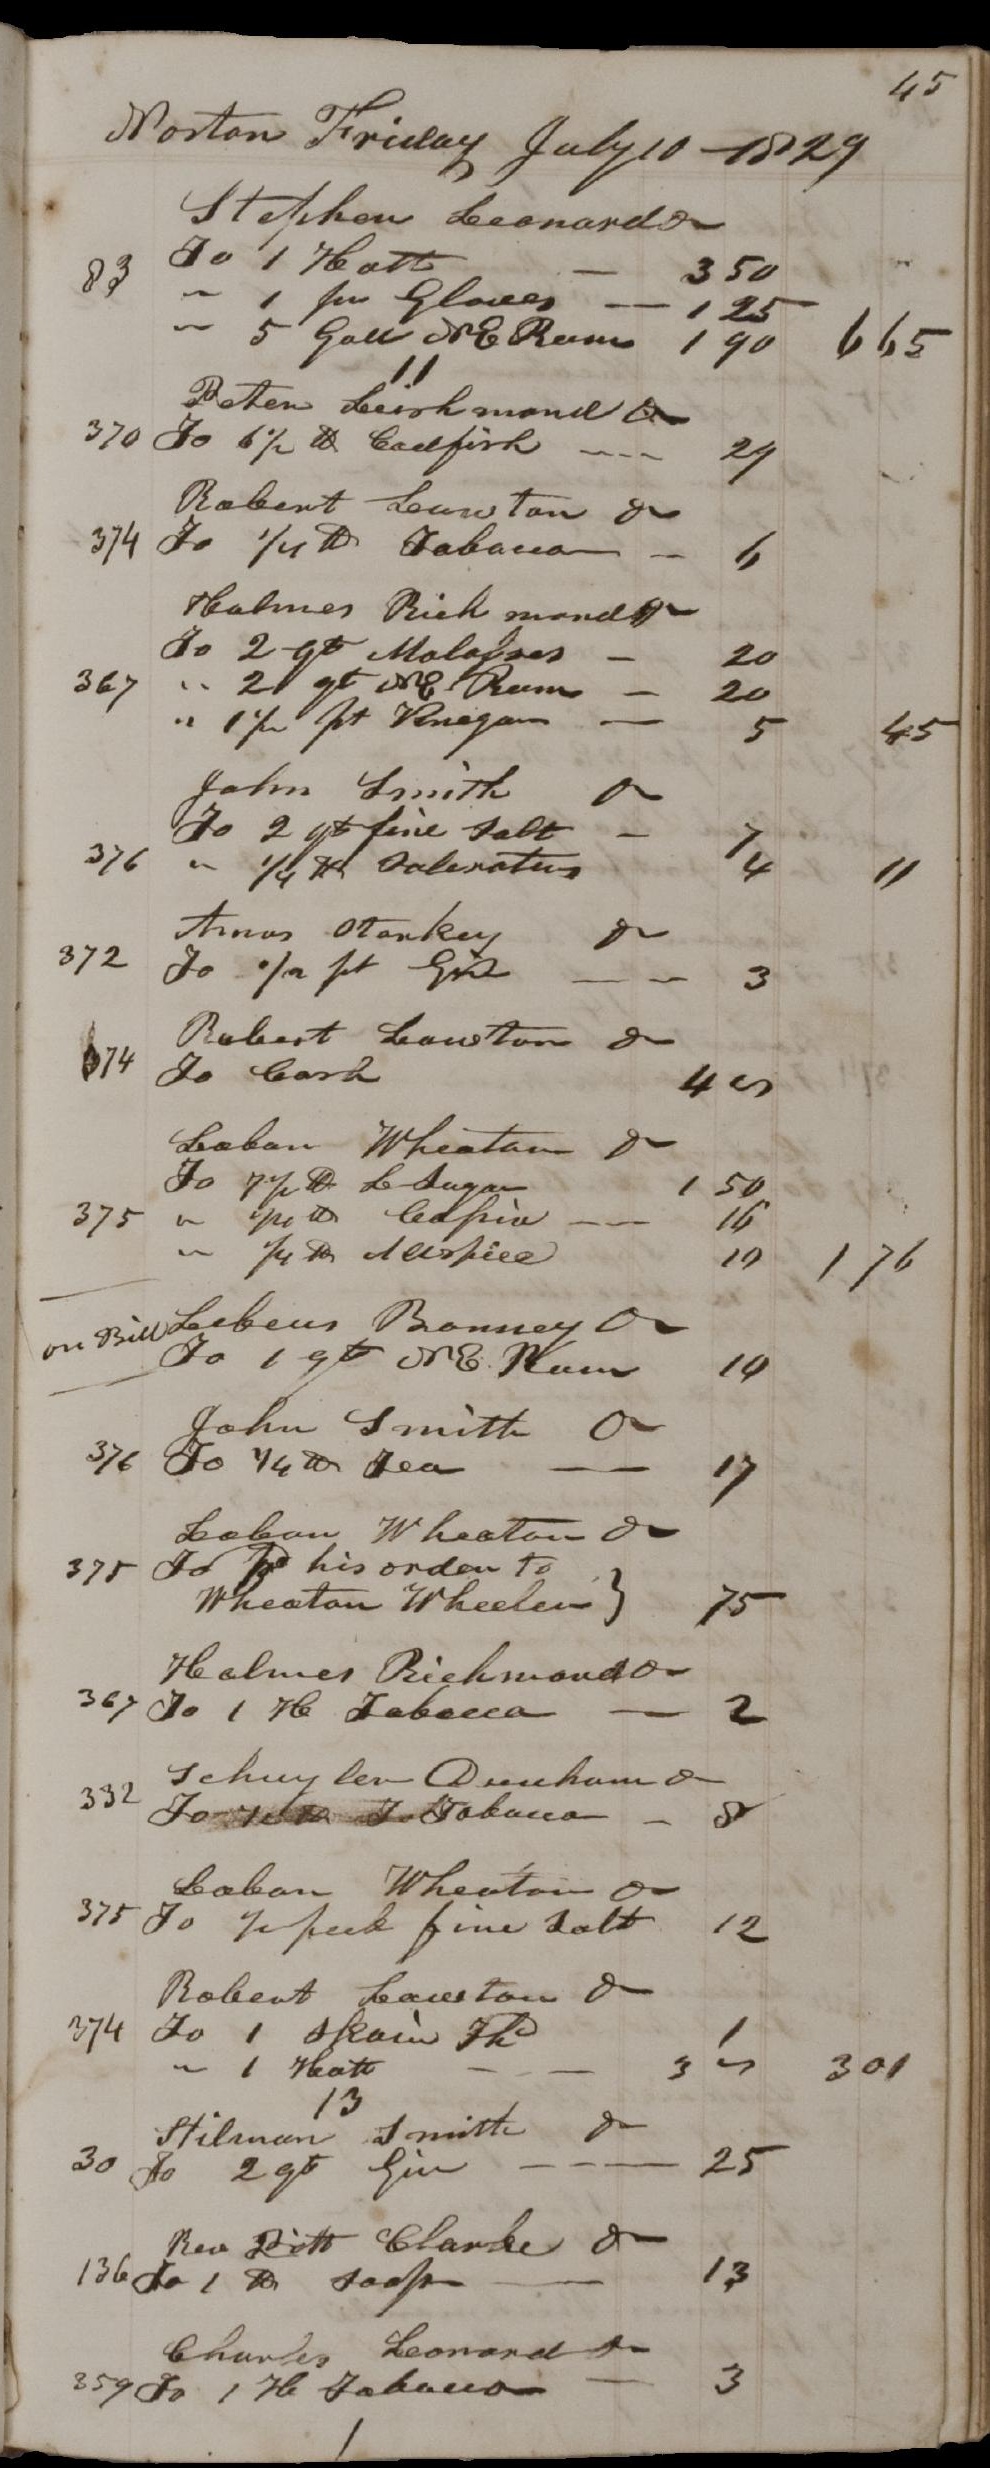 45
Norton Friday July 10 - 1829
Stephen Leonard Dr
83 To 1 Hatt — 3 50
" 1 pr Gloves — 1 25
" 5 Gall NE Rum 1 90 6 65
11
Peter Leishmond Dr
370 To 6 1/2 lb Codfish ---- 29
Robert Lawton Dr
374 To 1/4 lb Tobacco — 6
Holmes Richmond Dr
To 2 qt Molasses — 20
367 " 2 qt NE Rum — 20
" 1 1/2 pt Vinegar — 5 45
John Smith Dr
To 2 qt fine Salt — 7
376 " 1/4 lb Saleratus 4 11
Amos Starkey Dr
372 To 1/2 pt Gin — — 3
Robert Lawton Dr
374 To Cash 4 00
Laban Wheaton Dr
To 7 1/2 lb L Sugar 1 50
375 " lb Cassia — 16
" 1/4 lb Allspice 10 1 76
on Bill Lebeus Bonney Dr
To 1 qt NE Rum 10
John Smith Dr
376 To 1/4 lb Tea — 17
Laban Wheaton Dr
375 To pd his order to
Wheaton Wheeler } 75
Holmes Richmond Dr
367 To 1 H Tobacco — 2
Schuyler Dunham Dr
332 To lb Tobacco — 8
Laban Wheaton Dr
375 To 1/2 peck fine Salt 12
Robert Lawton Dr
374 To 1 Skain Thd 1
" 1 Hatt — — 3 00 3 01
13
Stilman Smith Dr
30 To 2 qt Gin — — — 25
Rev Pitt Clarke Dr
136 To 1 lb Soap — 13
Charles Leonard Dr
359 To 1 H Tobacco — 3
1